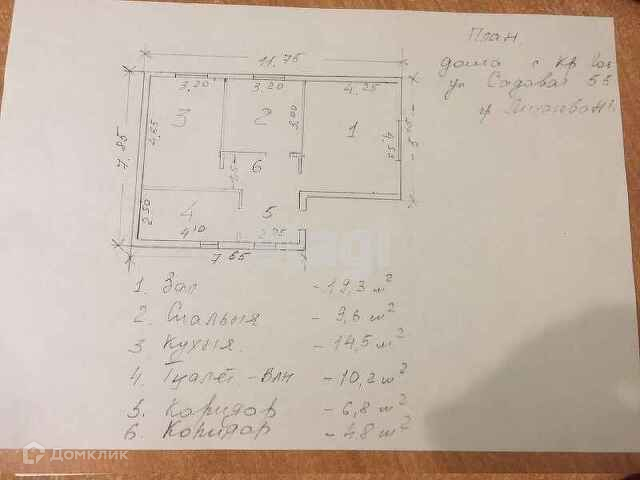 План
дома с Кр
ул Садовая 55
11.75
3,20 3,20 4,25
3 2 3,00 1
4,65 4,55
7,85
6
2,50 4 5
4,10 2,75
7,65
1. Зал - 19,3 м²
2. Спальня - 9,6 м²
3 Кухня. - 14,5 м²
4. Туалет-ванн - 10,2 м²
5. Коридор - 6,8 м²
6. Коридор - 4,8 м²
Домклик